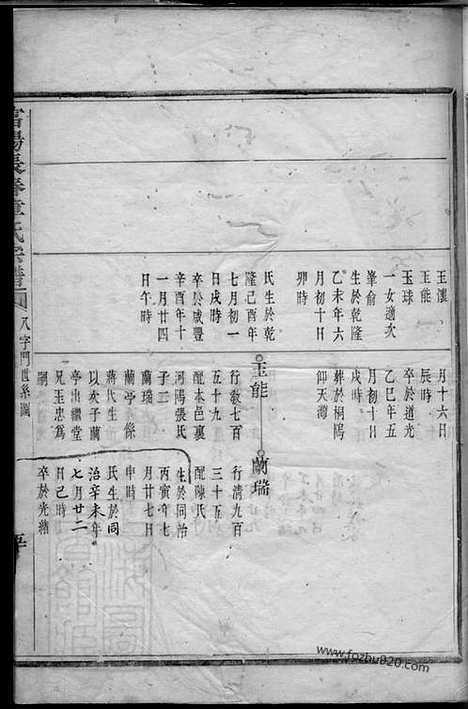 富陽長春童氏宗譜
八字門世系圖
玉潢
玉能
玉球
一女適次
峯俞
生於乾隆
乙未年六
月初十日
卯時
氏生於乾
隆己酉年
七月初一
日戌時
卒於咸豐
辛酉年十
一月廿四
日午時
月十六日
辰時
卒於道光
乙巳年五
月初十日
戌時
葬於桐隖
仰天灣
玉能
行敬七百
五十九
配本邑裏
河隖張氏
子三
蘭瑞
蘭亭 蘭條
蔣氏生
以次子蘭
亭出繼堂
兄玉忠為
嗣
蘭瑞
行清九百
三十五
配陳氏
生於同治
丙寅年七
月廿七日
申時
氏生於同
治辛未年
七月廿二
日巳時
卒於光緒
www.fozhu920.com